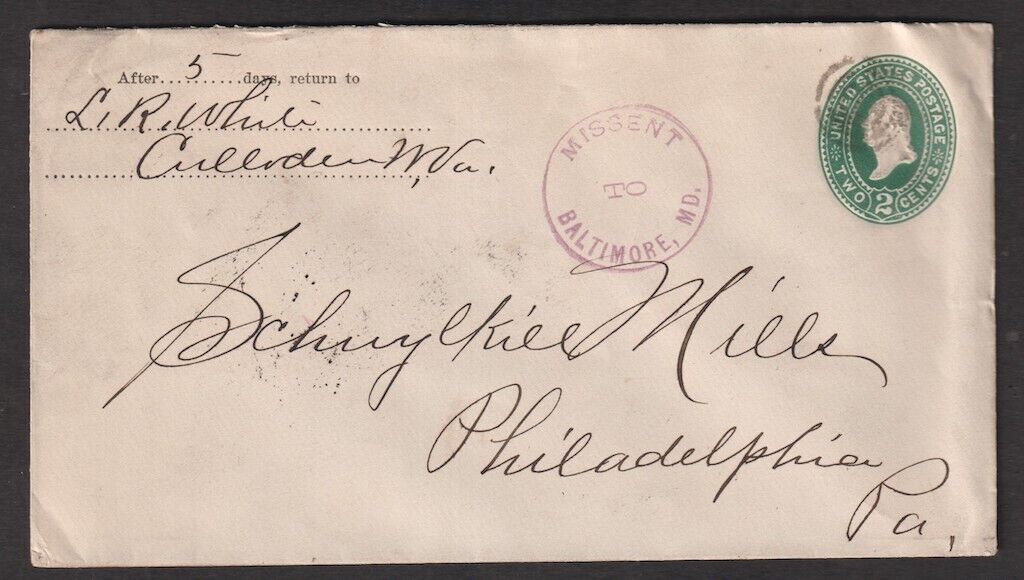 After....5.....days, return to
L. R. White
Culloden W, Va.
MISSENT
TO
BALTIMORE, MD.
UNITED STATES POSTAGE
TWO 2 CENTS
Schuylkill Mills
Philadelphia
Pa,